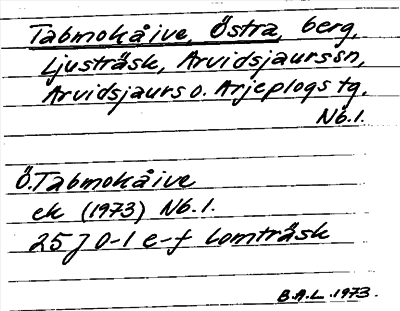 Tabmokåive, Östra, berg,
Ljusträsk, Arvidsjaurs sn,
Arvidsjaurs o. Arjeplogs tg.
Nb.l.
Ö.Tabmokåive
ek (1973) Nb.l.
25J 0-1 e-f Lomträsk
B.A.L. 1973.